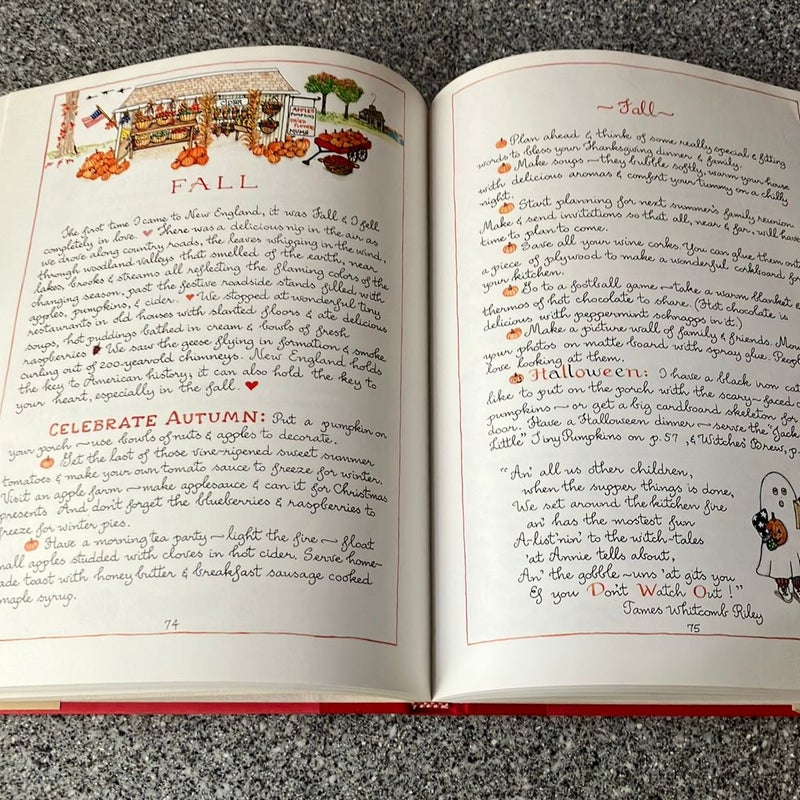 CIDER
APPLES
PUMPKINS
DRIED FLOWERS
MUMS
FALL
The first time I came to New England, it was Fall & I fell
completely in love. ♥ There was a delicious nip in the air as
we drove along country roads, the leaves whipping in the wind,
through woodland valleys that smelled of the earth, near
lakes, brooks & streams all reflecting the flaming colors of the
changing season, past the festive roadside stands filled with
apples, pumpkins, & cider. ♥ We stopped at wonderful tiny
restaurants in old houses with slanted floors & ate delicious
soups, hot puddings bathed in cream & bowls of fresh
raspberries We saw the geese flying in formation & smoke
curling out of 200-yearold chimneys. New England holds
the key to American history, it can also hold the key to
your heart, especially in the fall. ♥
CELEBRATE AUTUMN: Put a pumpkin on
your porch — use bowls of nuts & apples to decorate.
Get the last of those vine-ripened sweet summer
tomatoes & make your own tomato sauce to freeze for winter.
Visit an apple farm — make applesauce & can it for Christmas
presents. And don't forget the blueberries & raspberries to
freeze for winter pies.
Have a morning tea party — light the fire — float
mall apples studded with cloves in hot cider. Serve home-
ade toast with honey butter & breakfast sausage cooked
maple syrup.
74
~Fall~
Plan ahead & think of some really special & fitting
words to bless your Thanksgiving dinner & family.
Make soups — they bubble softly, warm your house
with delicious aromas & comfort your tummy on a chilly
night.
Start planning for next summer's family reunion.
Make & send invitations so that all, near & far, will have
time to plan to come.
Save all your wine corks. You can glue them onto
a piece of plywood to make a wonderful corkboard for
your kitchen.
Go to a football game — take a warm blanket &
thermos of hot chocolate to share. (Hot chocolate is
delicious with peppermint schnapps in it.)
Make a picture wall of family & friends. Moun
your photos on matte board with spray glue. People
love looking at them.
Halloween: I have a black iron cat
like to put on the porch with the scary-faced
pumpkins — or get a big cardboard skeleton for
door. Have a Halloween dinner — serve the "Jack
Little" Tiny Pumpkins on p. 57, & Witches' Brew, p.
"An' all us other children,
when the supper things is done,
We set around the kitchen fire
an' has the mostest fun
A-list'nin' to the witch-tales
'at Annie tells about,
An' the gobble-uns 'at gits you
Ef you Don't Watch Out!"
James Whitcomb Riley
75